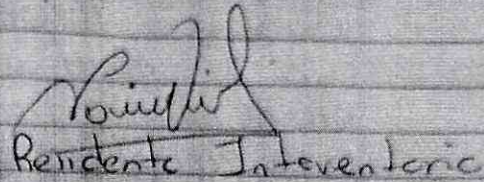 Residente Interventoria